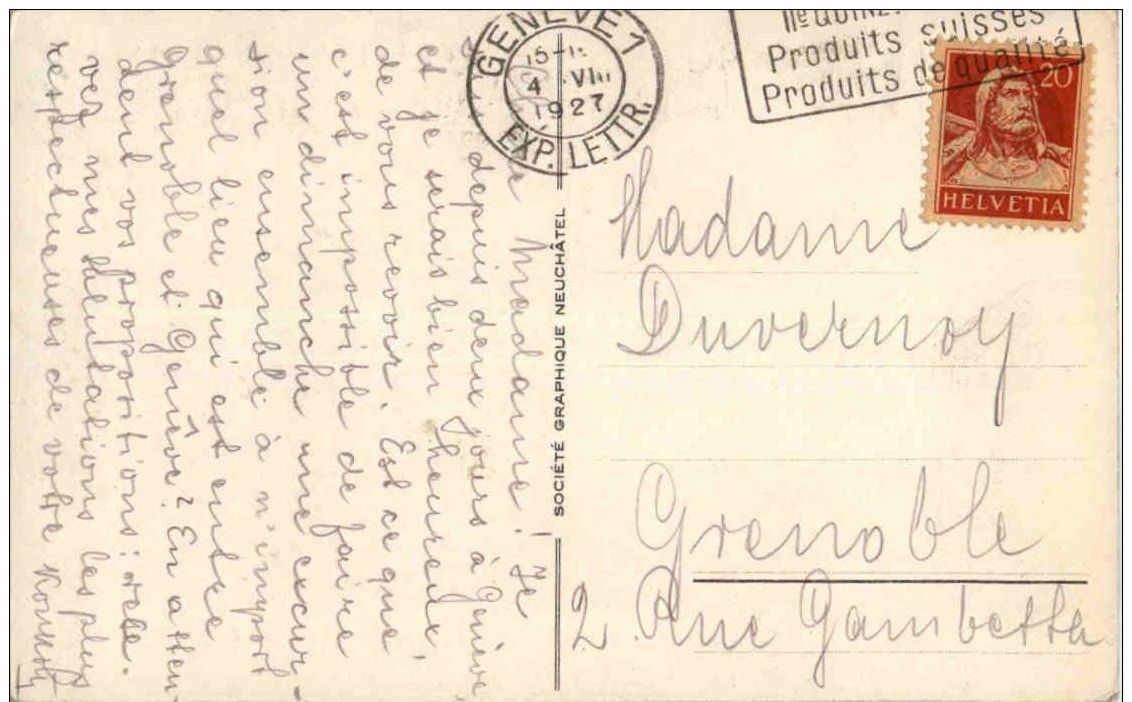 GENÈVE 1
15-
4 VIII
1927
EXP. LETTR.
IIe QUINZ.
Produits suisses
Produits de qualité
20
HELVETIA
Madame! Je
suis depuis deux jours à Génève,
et je serais bien heureux,
de vous revoir. Est ce que
c'est impossible de faire
un dimanche une excur-
sion ensemble à n'import
quel lieu qui est entre
Grenoble et Genève? En atten-
dent vos propositions: rece-
vez mes salutations les plus
respectueuses de votre
SOCIÉTÉ GRAPHIQUE NEUCHÂTEL
Madame
Duvernoy
Grenoble
2 Rue Gambetta